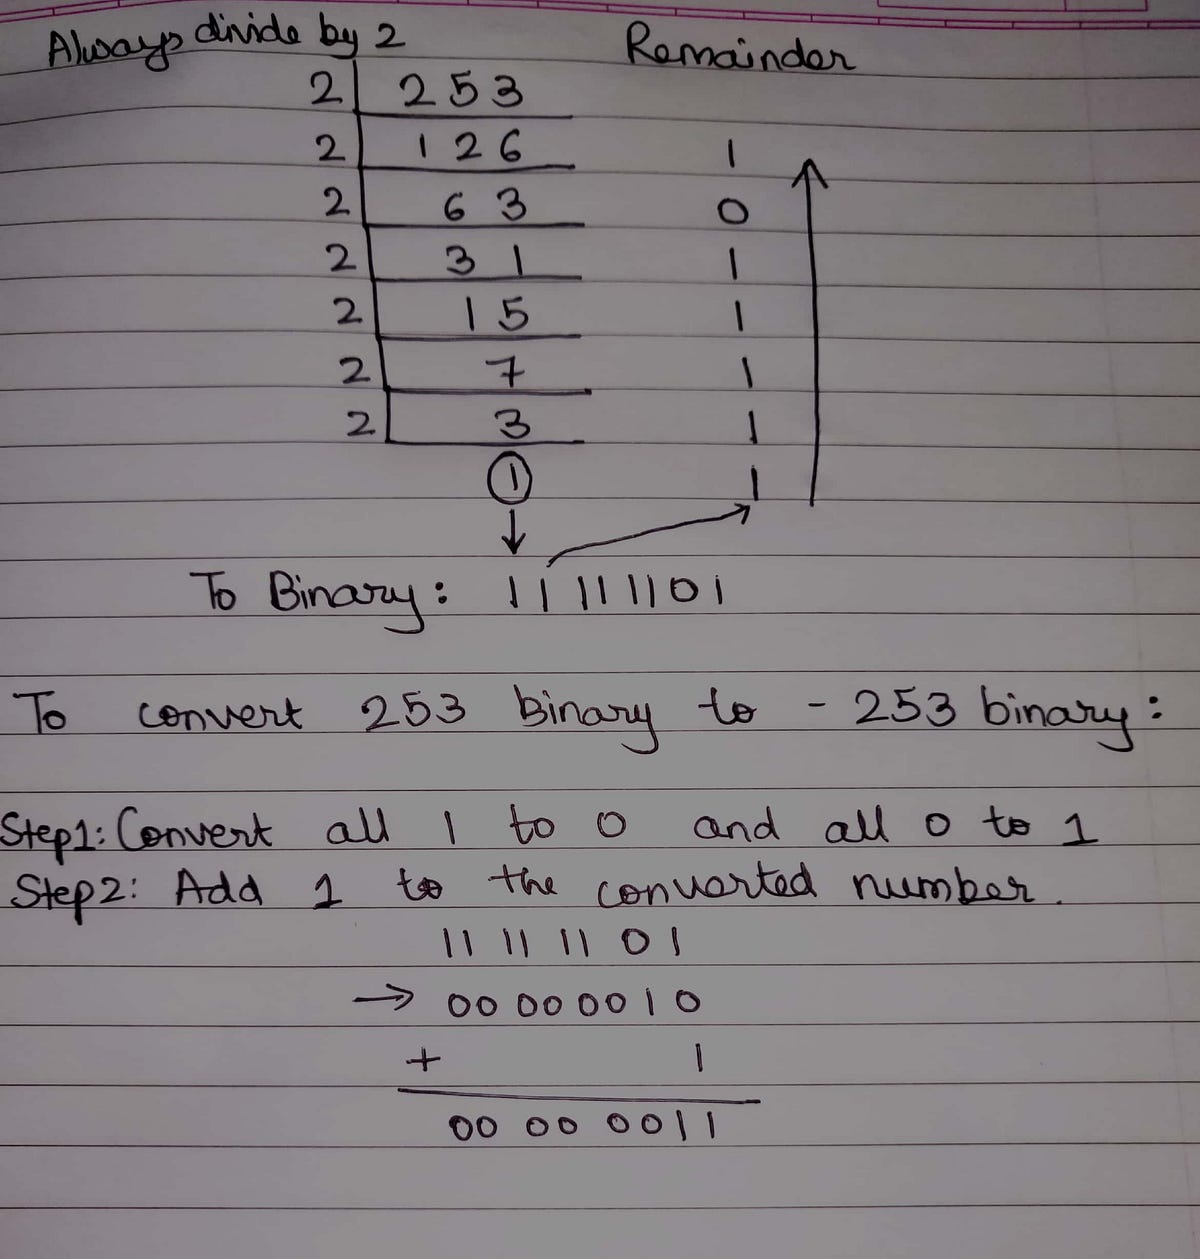 Always divide by 2 Remainder
2 253
2 126 1
2 63 0
2 31 1
2 15 1
2 7 1
2 3 1
1 1
To Binary: 11111101
To convert 253 binary to - 253 binary:
Step1: Convert all 1 to 0 and all 0 to 1
Step2: Add 1 to the converted number.
11 11 11 01
→ 00 00 00 10
+ 1
00 00 0011